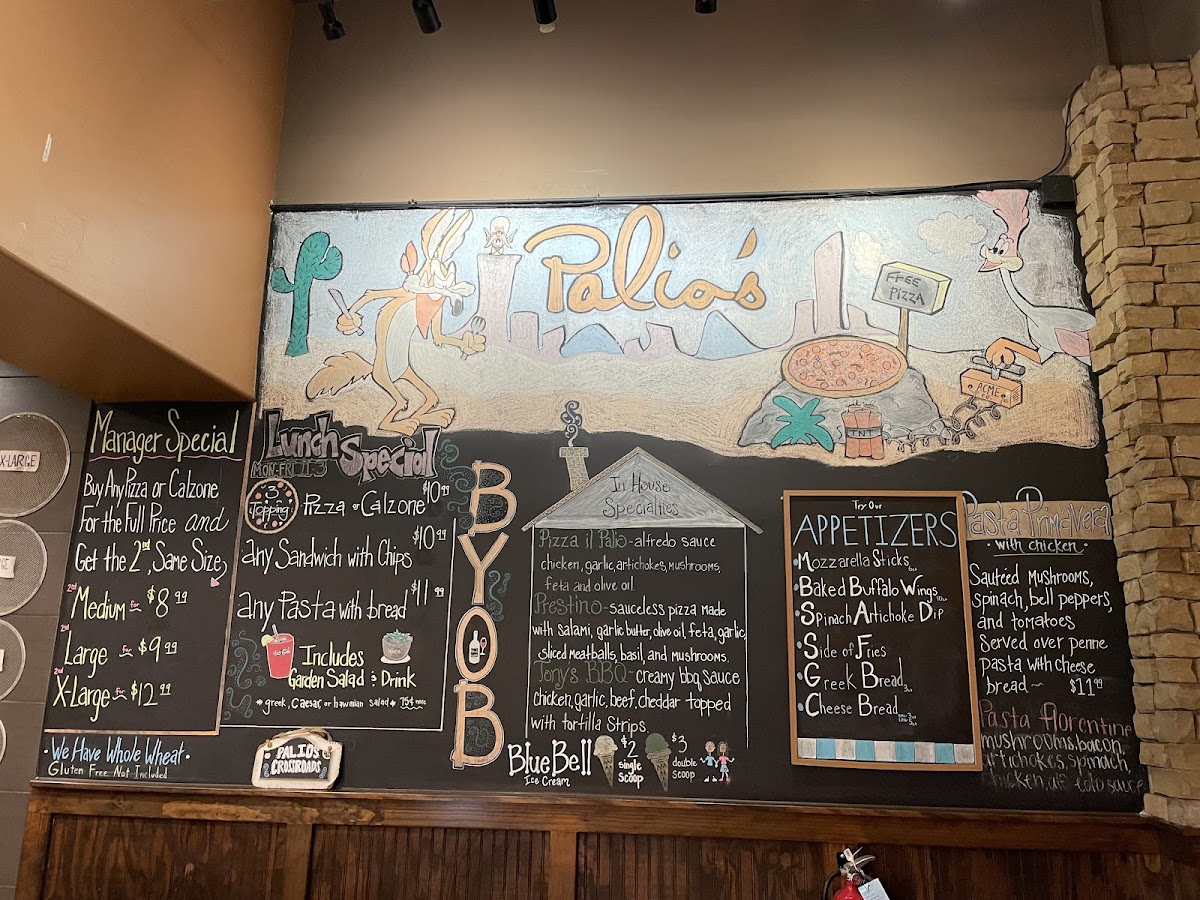 Palio's
FREE
PIZZA
ACME
TNT
X-LARGE
Manager Special
Buy Any Pizza or Calzone
For the Full Price and
Get the 2nd, Same Size,
2nd Medium for $8.99
2nd Large for $9.99
2nd X-Large for $12.99
• We Have Whole Wheat •
Gluten Free Not Included
Lunch Special
MON-FRI 11-3
3
Topping
Pizza or Calzone $10.99
any Sandwich with Chips $10.99
any Pasta with bread $11.99
Includes
Garden Salad & Drink
* greek, caesar or hawaiian salad * 75¢ more
PALIO'S
CROSSROADS
BYOB
In House
Specialties
Pizza il Palio - alfredo sauce
chicken, garlic, artichokes, mushrooms,
feta and olive oil.
Prestino - sauceless pizza made
with salami, garlic butter, olive oil, feta, garlic,
sliced meatballs, basil, and mushrooms.
Tony's BBQ - creamy bbq sauce
chicken, garlic, beef, cheddar topped
with tortilla strips.
Blue Bell
Ice Cream
$2
single
scoop
$3
double
scoop
Try Our
APPETIZERS
• Mozzarella Sticks
• Baked Buffalo Wings
• Spinach Artichoke Dip
• Side of Fries
• Greek Bread
• Cheese Bread
Pasta Primavera
• with chicken •
Sautéed mushrooms,
spinach, bell peppers,
and tomatoes
served over penne
pasta with cheese
bread ~ $11.99
Pasta florentine
mushrooms, bacon,
artichokes, spinach,
chicken, sauce